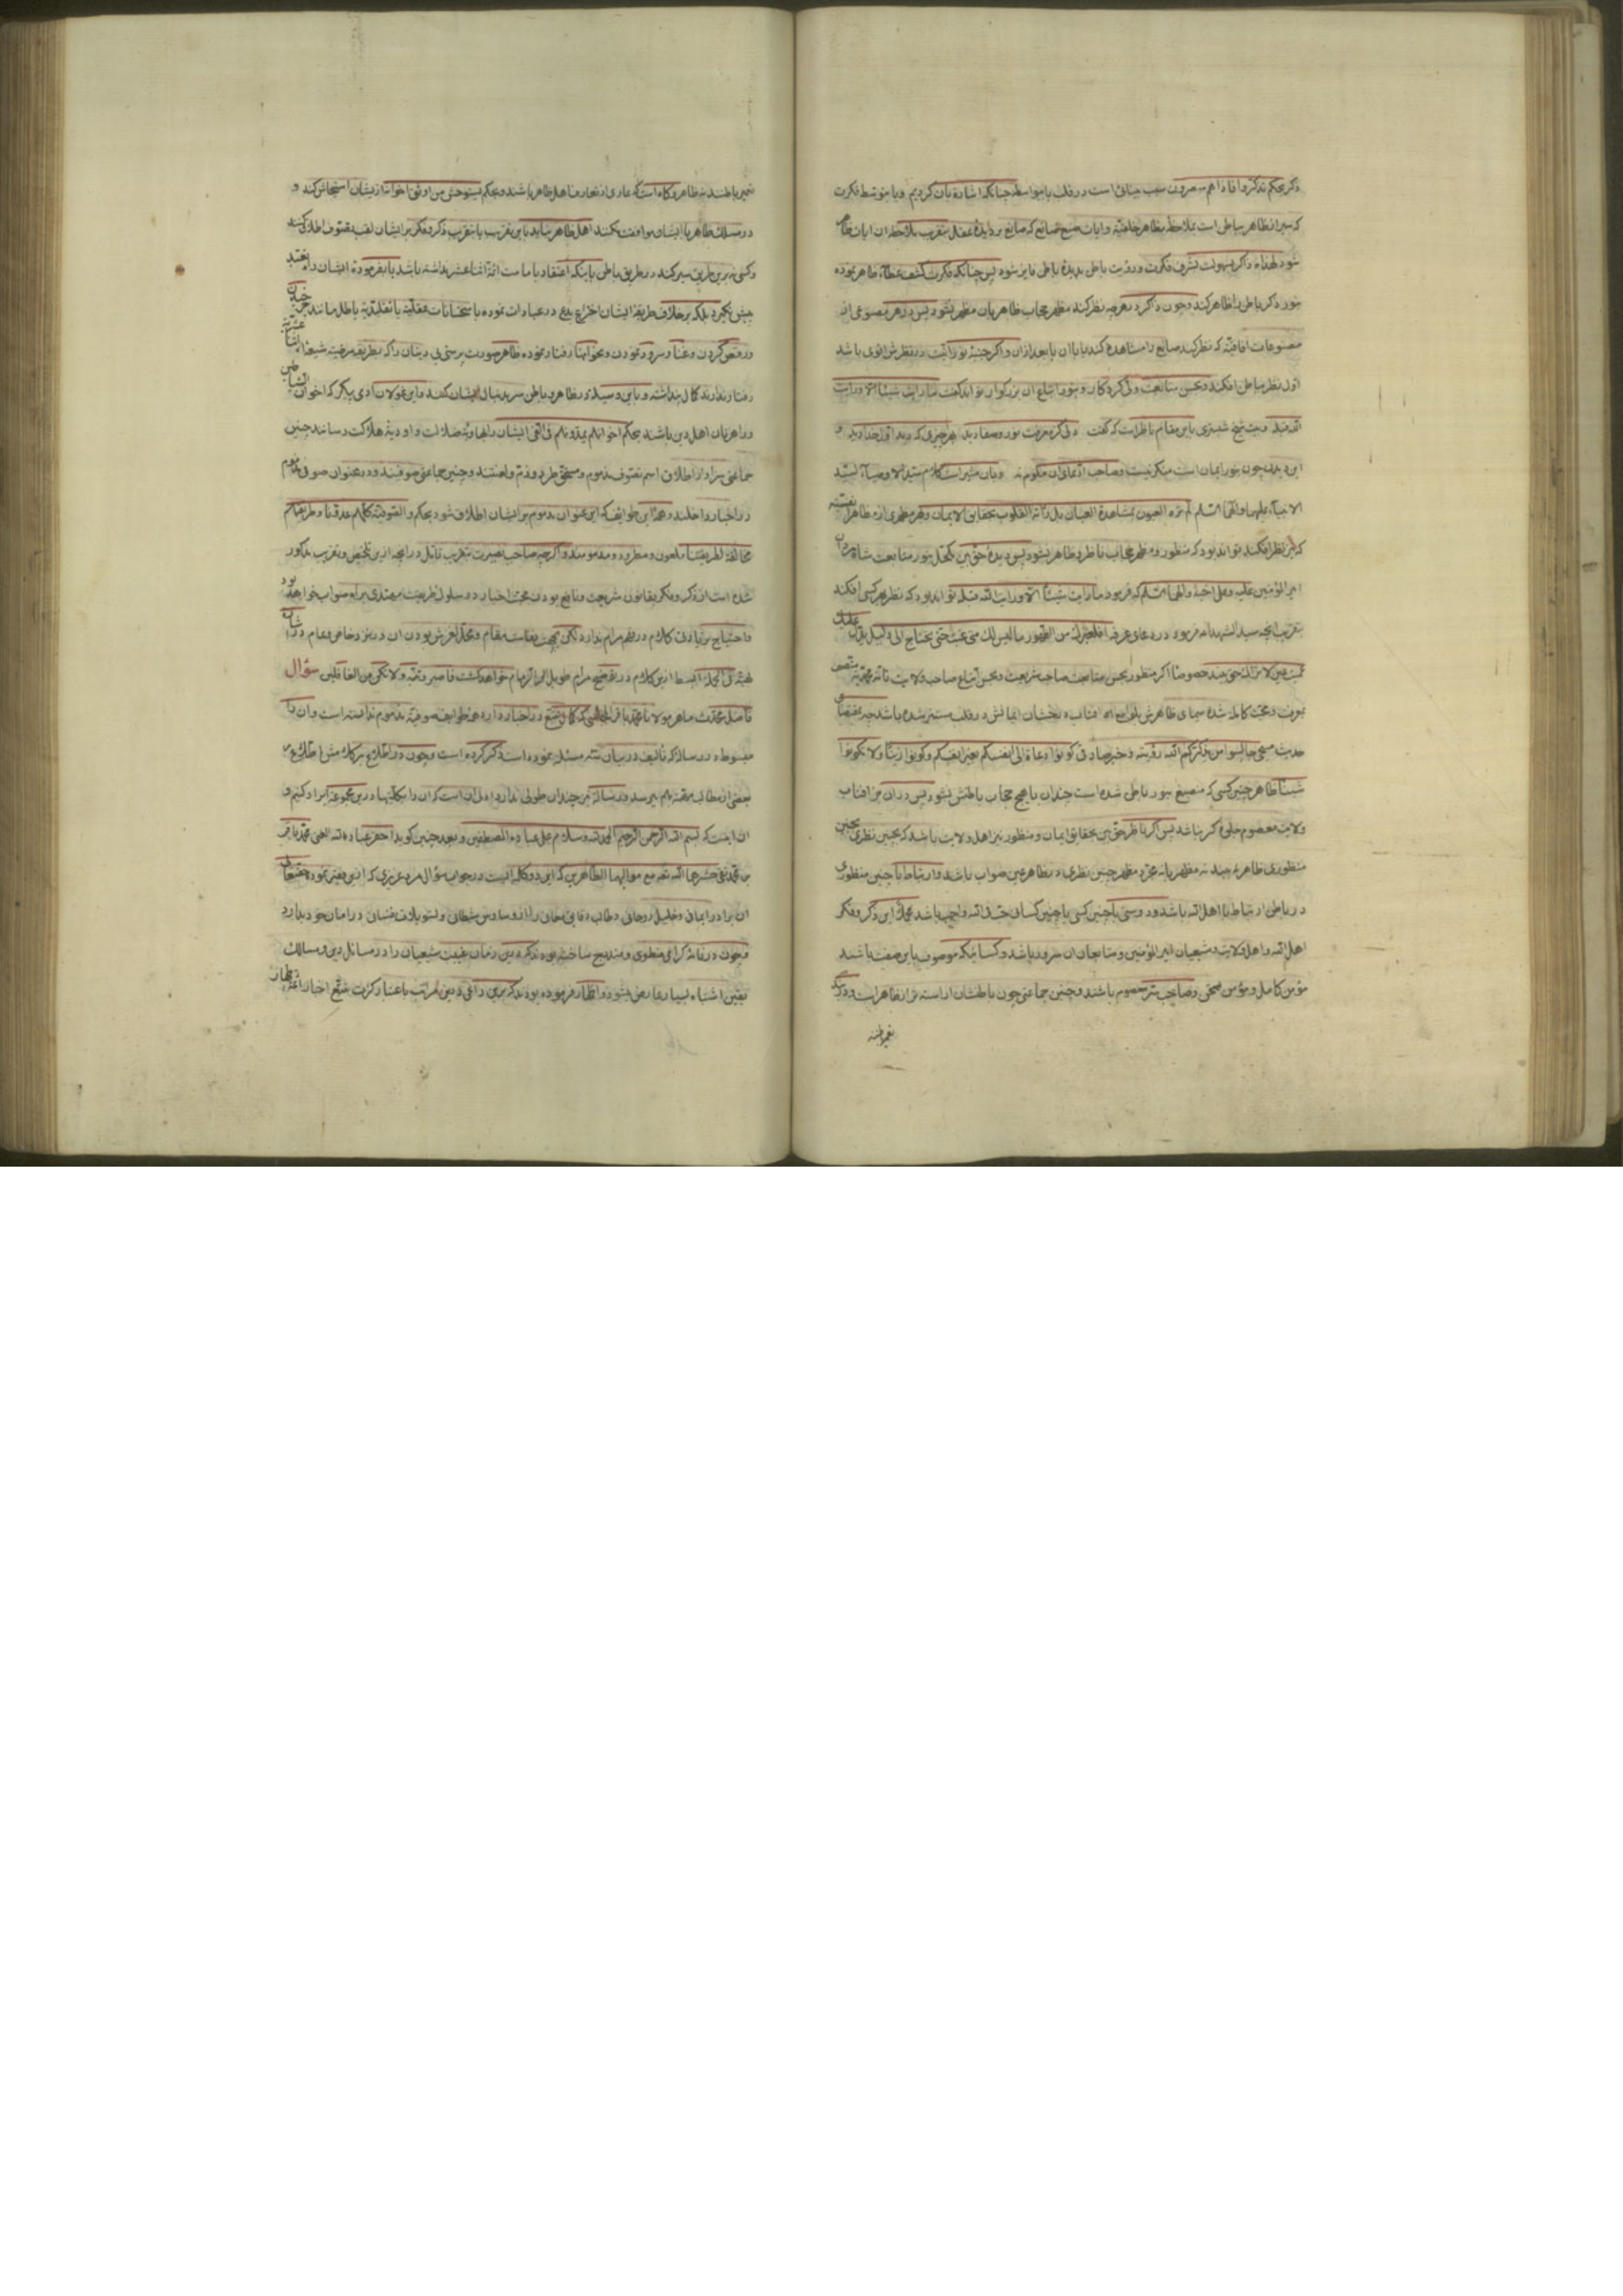 ذکر بحکم تذکروا فاذا هم مبصرون سبب بینائی است در قلب یا بواسطه چنانکه اشاره بآن کردیم و یا بتوسط فکرت
که سیر از ظاهر بباطن است بملاحظه مظاهر خلقیّه و آیات صنع صانع که صانع بر دیدهٔ عقل بتقریب ملاحظه ان ایات ظاهر
شود لهذا ذاکر بسهولت بشرف فکرت و رؤیت باطن بدیدهٔ باطن فایز شود پس چنانکه فکرت کشف غطاء ظاهر نموده
بنور ذکر باطن را ظاهر کند و چون ذاکر در هرچه نظر کند مظهر حجاب ظاهر بان مظهر نشود پس در هر مصنوعی از
مصنوعات افاقیّه که نظر کند صانع را مشاهده کند یا با ان یا بعد از ان و اگر جنبهٔ نورانیت در نظرش اقوی باشد
اوّل نظر بباطن افکند و بحسن متابعت ولیّ کردگار و بنور اتباع ان بزرکوار تواند گفت ما رایت شیئا الا ورایت
الله قبله و بیت شیخ شبستری باین مقام ناظر است که گفت دلی کز معرفت نور و صفا دید بهر چیزی که دید اوّل خدا دید و
این دیدن چون بنور ایمان است منکر نیست و صاحب ادّعای ان ملوم نه و بآن مشیر است کلام سیّد الاوصیاء لسیّد
الانبیاء علیهما و آلهما السّلم لم تره العیون بمشاهدة العیان بل راته القلوب بحقایق الایمان و هر مظهری از مظاهر نفسیّه
که نظر افکند تواند بود که منظور و مظهر حجاب ناظر و ظاهر نشود پس دیدهٔ حق بین مکتحل بنور متابعت شاه مردان
امیر المؤمنین علیه و علی اخیه و آلهما السّلم که فرمود ما رایت شیئا الا ورایت الله قبله تواند بود که نظر بهر کسی افکند
بتقریب آنچه سید الشهدا فرمود در دعای عرفه الغیرک من الظهور ما لیس لک متی غبت حتی تحتاج الی دلیل یدل علیک
عمیت عین لا تراک حق بیند خصوصا اگر منظور بحسن متابعت صاحب شریعت و بحسن اتباع صاحب ولایت تامّه محمّدیّه متّصف
بمعرفت و محبت کامله شده سیمای ظاهرش بلوامع افتاب درخشان ایمانش در قلب مستنیر شده باشد چه بمقتضای
حدیث مسیحی جالسوا من یذکرکم الله رؤیته و خبر صادقی کونوا دعاة الی انفسکم بغیر السنتکم وکونوا زینا ولا تکونوا
شینا ظاهر چنین کسی که منصبغ بنور باطن شده است چندان حجاب باطنش نشود پس در ان مرآت افتاب
ولایت معصوم جلوه گر باشد پس اگر ناظر حق بین بحقایق ایمان و منظور نیز اهل ولایت باشد که بچنین نظری بچنین
منظوری ظاهر بیند نه مظهر یا نه مجرّد مظهر چنین نظری در ظاهر عین صواب باشد و ارتباط با چنین منظوری
در باطن ارتباط با اهل الله باشد و دوستی با چنین کسی یا چنین کسان حبّ فی الله و واجب باشد محک این ذکر و فکر
اهل الله و اهل ولایت و شیعیان امیر المؤمنین و متابعان ان سرور باشد و کسانیکه موصوف باین صفت باشند
مؤمن کامل و مؤمن ممتحن و صاحب سرّ معصوم باشند و چنین جماعتی چون باطنشان اراسته تر از ظاهر است و در
تعمیر باطنند
تعمیر باطنند نه ظاهر و کاه است که عاری از تعارف اهل ظاهر باشند و بحکم یستوحش من اوثق اخوانه از یشان استیحاش کنند و
در مسلک ظاهر با ایشان موافقت نکنند اهل ظاهر شاید باین تقریب یا بتقریب ذکر و فکر بر ایشان لقب تصوّف اطلاق کنند
و کسی نه برین طریق سیر کند در طریق باطن باینکه اعتقاد بامامت ائمّهٔ اثنا عشر نداشته باشد یا بفرمودهٔ ایشان راه تعبّد
پیش نکیرد بلکه بر خلاف طریقهٔ ایشان اختراع بدع در عبادات نموده باستحسانات عقلیّه یا تقلیدیّه باطل مانند
و رقص کردن و غنا و سرود نمودن و بحو اینها رفتار نموده ظاهر صورت پرستی بی دینان را که بطریقه مرضیّه شیعهٔ
رفتار ندارند کمال پنداشته و باین وسیله در ظاهر و باطن سر بدنبال ایشان کنند و این غولان آدمی پیکر که اخوان الشیاطین
و راهزنان اهل دین باشند بحکم اخوانهم یمدّونهم فی الغیّ ایشان را بهاویهٔ ضلالت و اودیهٔ هلاکت رسانند چنین
جماعتی سزاوار اطلاق اسم تصوّف مذموم و مستحقّ طرد و ذمّ و لعنتند و چنین جماعتی صوفیند و در عنوان صوفی مذموم
در اخبار داخلند و همهٔ این طوایف که این عنوان مذموم بر ایشان اطلاق شود بحکم والصوفیّة کلّهم عدوّنا وطریقتهم
مخالفة لطریقتنا ملعون و مطرود و مذمومند و اگرچه صاحب بصیرت بتقریب تامّل در آنچه ازین تلخیص و تقریب مذکور
شده است از ذکر و فکر بقانون شریعت و نافع بودن محبّت اخیار در سلوک طریقت مهتدی براه صواب خواهد بود
و احتیاج بزیادتی کلام در فهم مرام ندارد لکن بجهت نفاست مقام و محلّ لغزش بودن ان در نزد خاص و عام
فی الجمله ابسط ازین کلام در توضیح مرام طویل الذیل لازم خواهد گشت فاصبر وتنبّه ولا تکن من الغافلین سؤال
فاضل محدّث ماهر مولانا محمّد باقر المجلسی که کمال تتبّع در اخبار دارد همه طوایف صوفیّه را مذموم ندانسته است و ان را
مبسوطا در رسالهٔ که تالیف در بیان ستّه مسئله نموده است ذکر کرده است و چون در اطلاع بر کلامش اطّلاع بر
بعضی از مطالب متمّه بهم میرسد و رساله نیز چندان طولی ندارد اولی ان است که ان را بکلّیتها درین مجموعه ایراد کنیم و
ان اینست که بسم الله الرحمن الرحیم الحمد لله وسلام علی عباده الذین اصطفی و بعد چنین کوید احقر عباد الله الغنی محمّد باقر
بن محمّد تقی حشرهما الله تعه مع موالیهما الطاهرین که این دو کلمه ایست در جواب سؤال مرد عزیزی که
ان برادر ایمانی و خلیل روحانی و طالب دقایق معانی را از وساوس شیطانی و تسویلات نفسانی در امان خود بدارد
و چون در نامهٔ گرامی منطوی و مندرج ساخته بودند که درین زمان غیبت شیعیان را در مسائل دین و مسالک
یقین اشتباه بسیار عارض میشود و اظهار فرموده بودند که برین داعی درین مراتب باعتبار کثرت تتبّع اخبار ائمّه اطهار